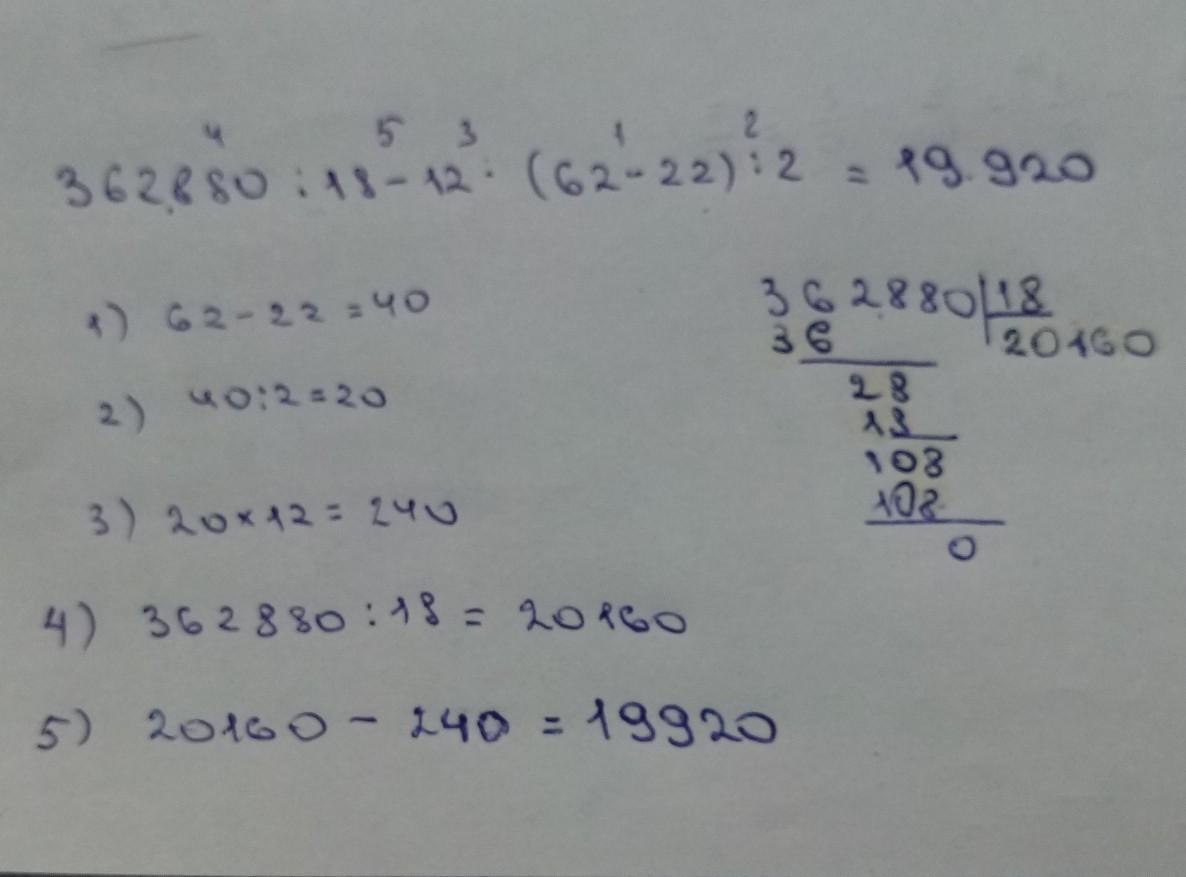 4 5 3 1 2
362.880 : 18 - 12 · (62 - 22) : 2 = 19.920
1) 62 - 22 = 40
2) 40 : 2 = 20
3) 20 × 12 = 240
4) 362880 : 18 = 20160
5) 20160 - 240 = 19920
362.880 | 18
36 20160
28
18
108
108
0